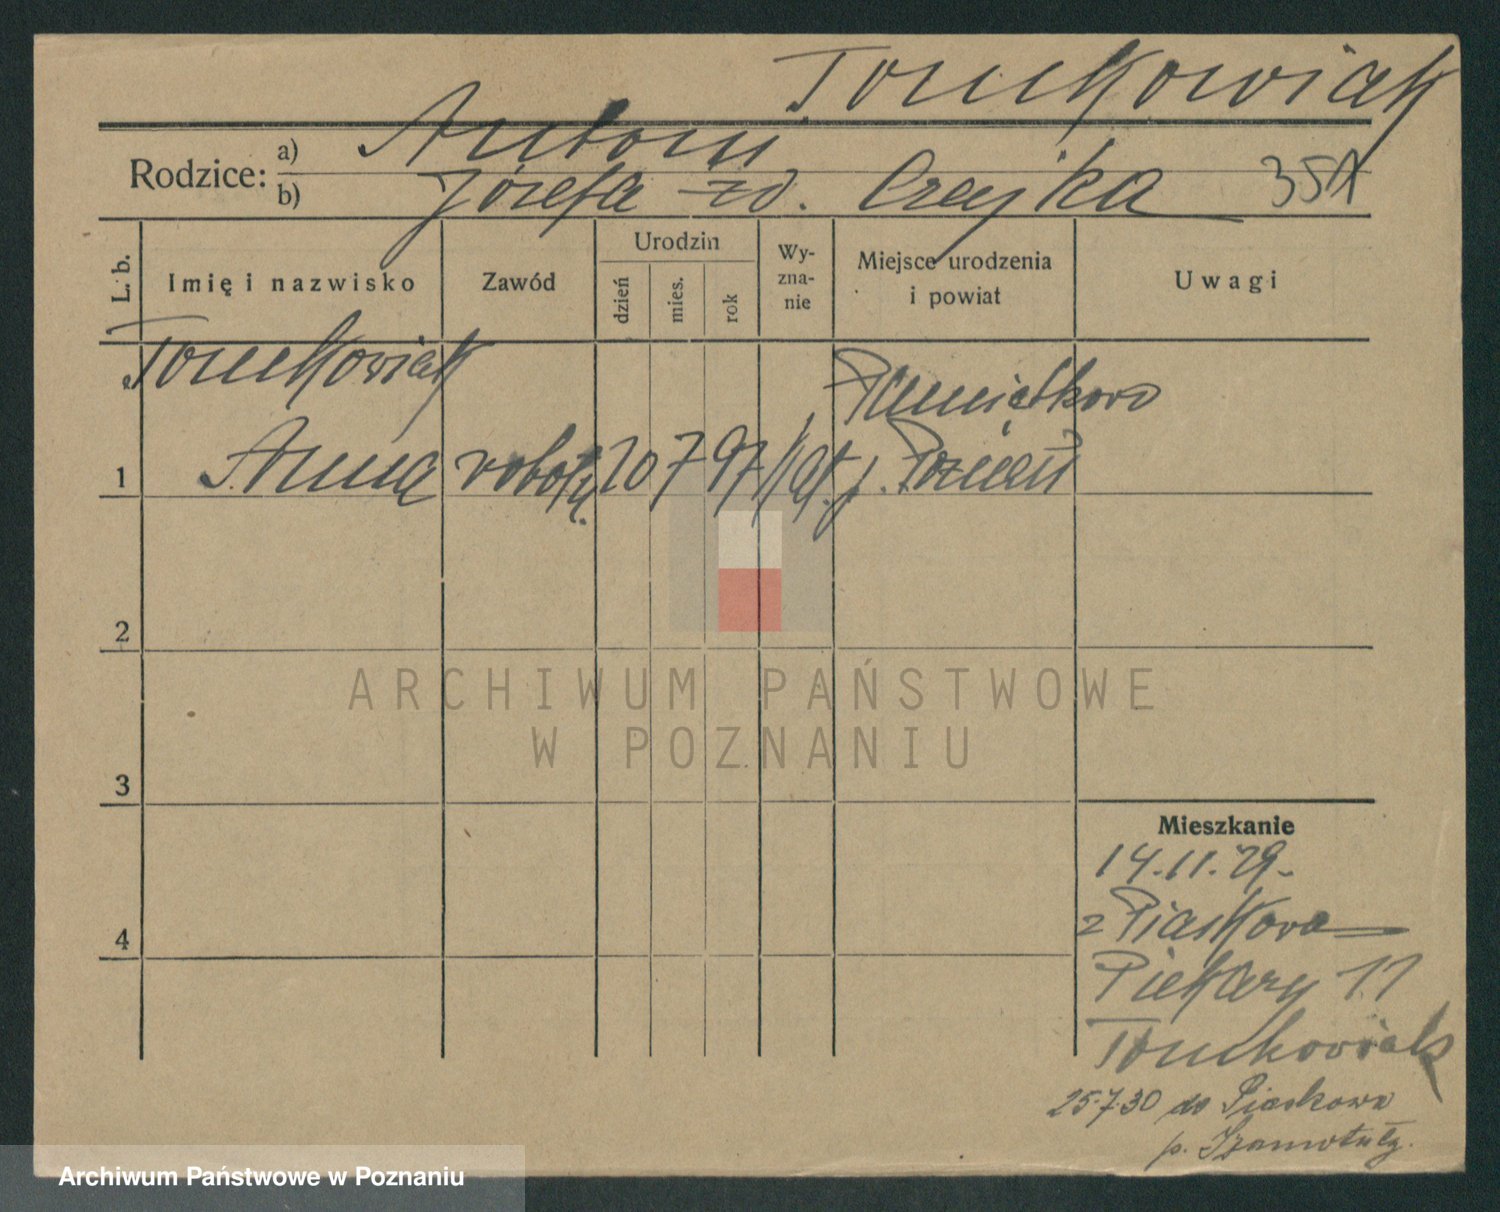 Tomkowiak
Rodzice: a) Antoni
b) Józefa zd. Czejka 351
L. b. Imię i nazwisko Zawód Urodzin dzień mies. rok Wy-zna-nie Miejsce urodzenia i powiat Uwagi
Tomkowiak Pamiątkowo
1 Anna robotn. 20 7 97 kat. p. Poznań
2
3
4
Mieszkanie
14.11.29.
z Piaskowa
Piekary 11
Tomkowiak
25.7.30 do Piaskowa
p. Szamotuły.
ARCHIWUM PAŃSTWOWE
W POZNANIU
Archiwum Państwowe w Poznaniu